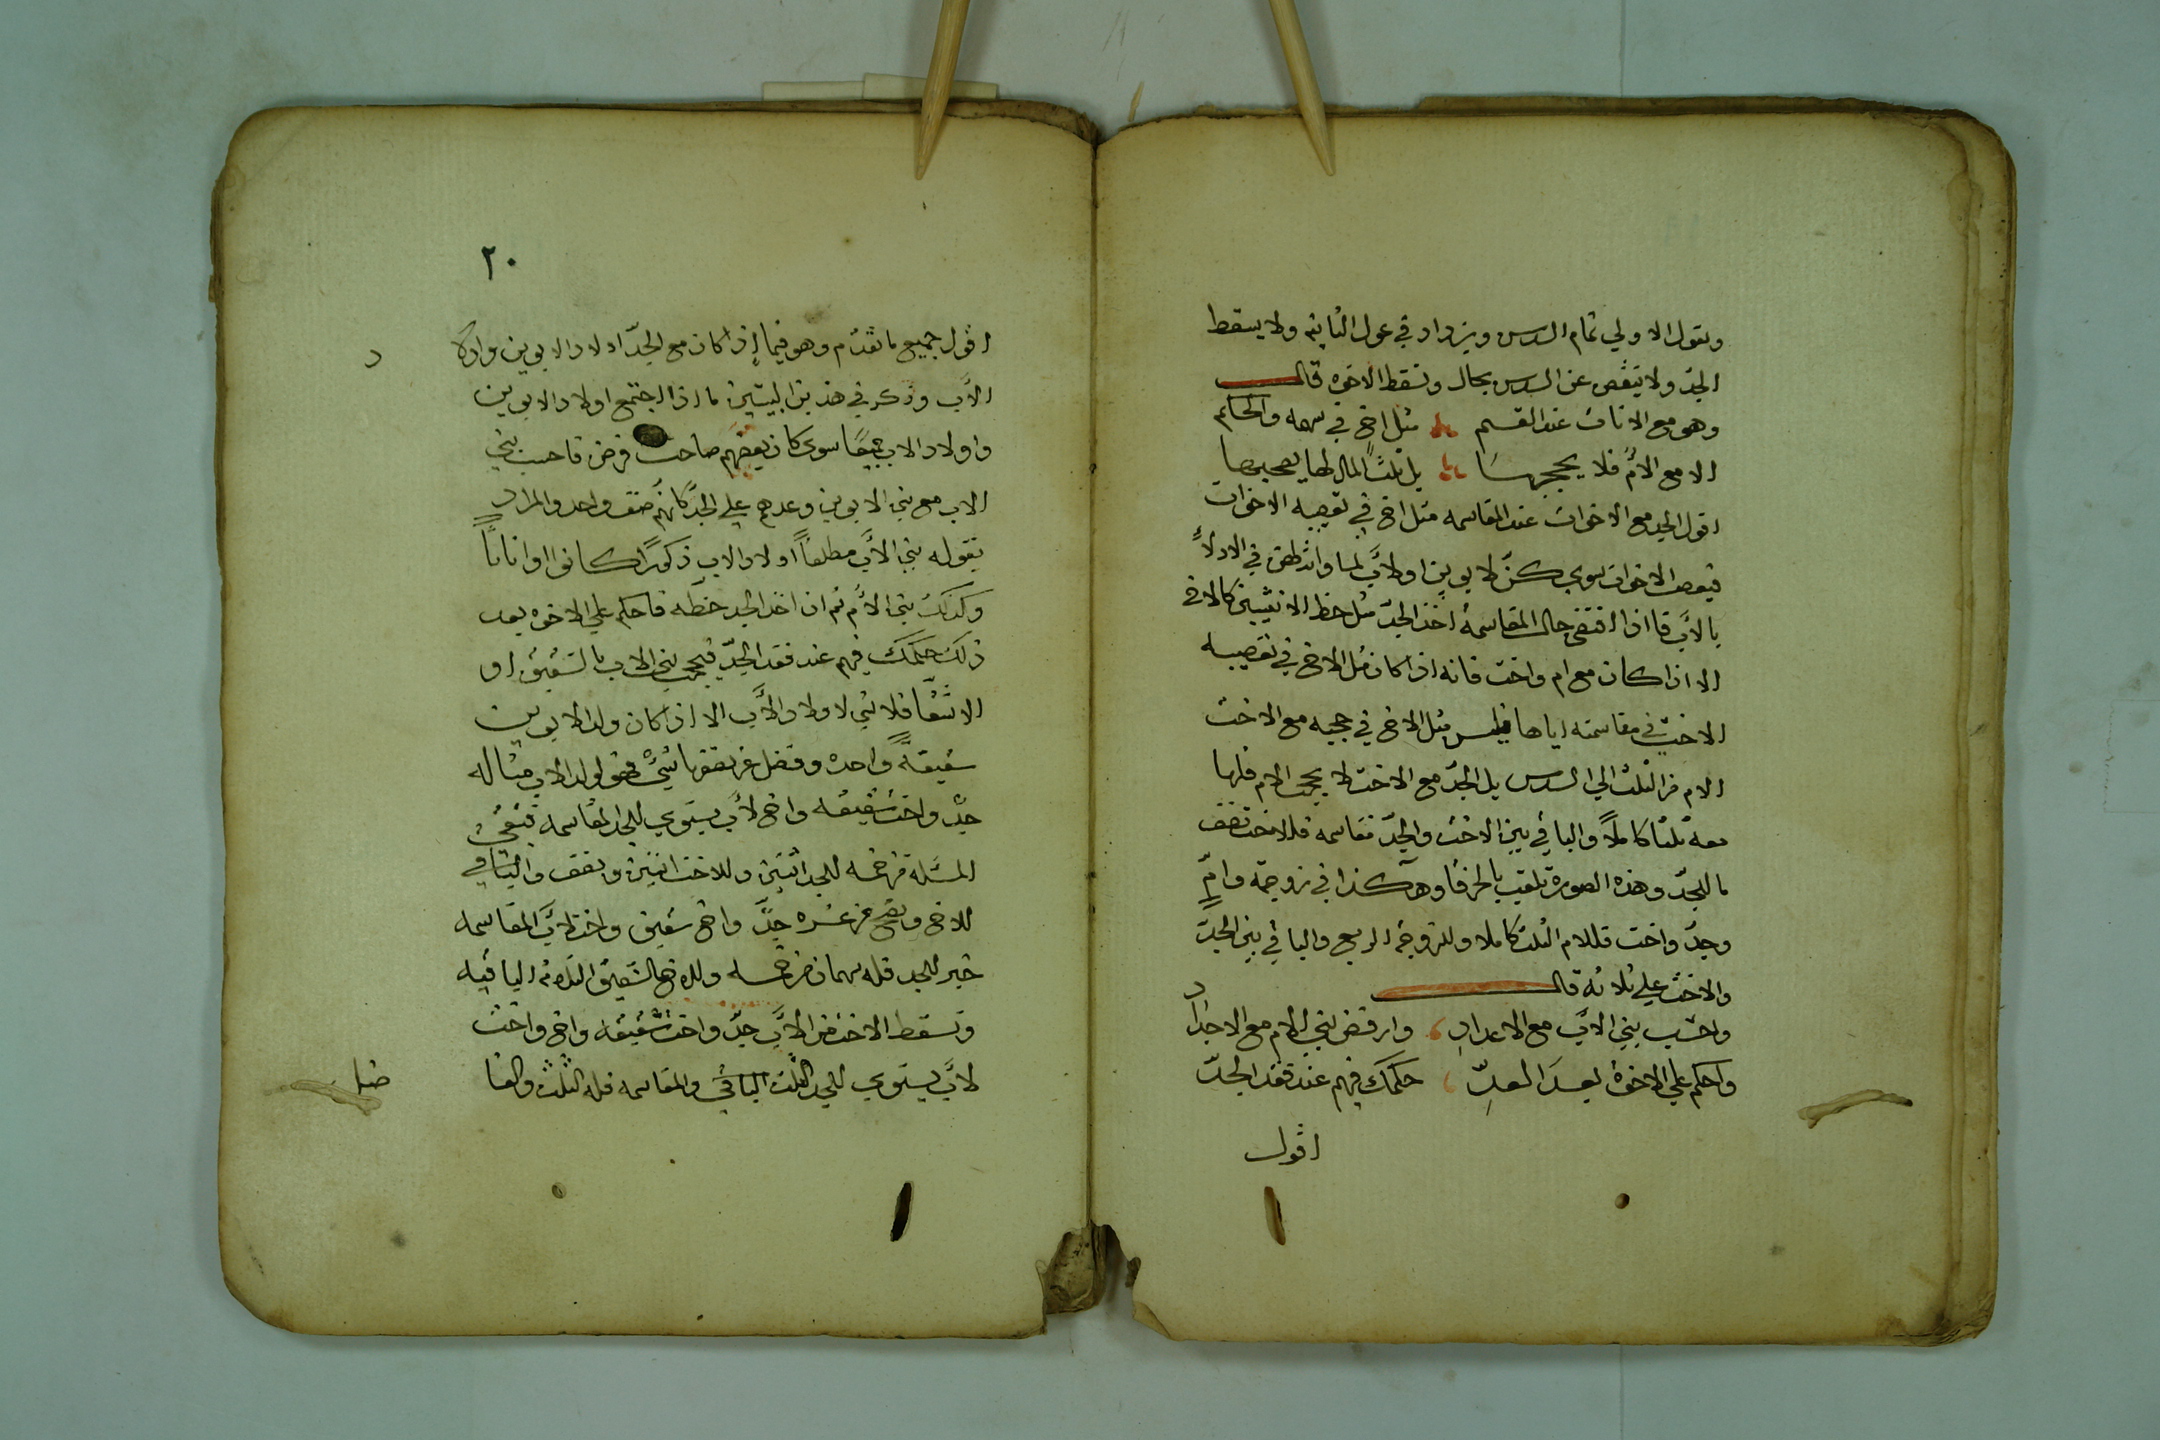 وتعول الاولي تمام السدس ويزداد في عول الثانيه ولا يسقط
الجدّ ولا ينقص عن السدس بحال وتسقط الاخوه قالــــ
وهو مع الاناث عند القسم مثل اخ في سهمه والحكم
الا مع الامّ فلا يحجبهــا بل ثلث المال لها يصحبها
اقول الجد مع الاخوات عند المقاسمه مثل اخ في تعصيبه الاخوات
فيعصب الاخوات سوي كنّ لابوين او لابّ لما
بالاب فاذا اقتضي حال المقاسمة اخذ الجدّ مثل حظ الانثيين كالاخ
الا اذا كان مع ام واخت فانه اذا كان مثل الاخ في تعصيبه
الاخت في مقاسمته اياها فليس مثل الاخ في حجبه مع الاخت
الام من الثلث الي السدس بل الجدّ مع الاخت لا يحجب الام فلها
معه ثلثا كاملاً والباقي بين الاخت والجدّ مقاسمه فللاخت نصف
ما للجدّ وهذه الصورة تلقب بالخرقا وهي كذا في زوجة وامّ
وجدّ واخت فللام الثلث كاملا وللزوجة الربع والباقي بين الجدّ
والاخت علي ثلاثة قالــــ
واحسب بني الابّ مع الاعدادِ وارفض بني الام مع الاجداد
واحكم علي الاخوة بعدَ العدِّ حكمك فيهم عند فقد الجدّ
اقول
٢٠
اقول جميع ما تقدم وهو فيما اذا كان مع الجدّ اولاد الابوين واولاد
الابّ وذكر في هذين البيتين ما اذا اجتمع اولاد الابوين
واولاد الاب جميعًا سوي كان بعضهم صاحب فرض فاحسب بني
الاب مع بني الابوين وعدهم علي الجدّ كانهم صنف واحد والمراد
بقوله بني الابّ مطلقًا اولاد الاب ذكورًا كانوا او اناثًا
وكذلك بني الامّ ثم ان اخذ الجد حظه فاحكم علي الاخوه بعد
ذلك حكمك فيهم عند فقد الجدّ فيحجب بني الاب بالشقيق او
الاشقّا فلا شي لاولاد الابّ الا اذا كان ولد الابوين
شقيقةً واحده وفضل عن نصفها شيء فهو لولد الاب مثاله
جدّ واخت شقيقه واخ لابّ يستوي للجد المقاسمه فتبقي
المسئله من خمسه للجد اثنين وللاخت اثنين ونصف والباقي
للاخ وتصح من عشره جدّ واخ شقيق واخت لابّ المقاسمه
خير للجد فله سهمان من خمسه وللاخ الشقيق الثلاثة الباقيه
وتسقط الاخت من الابّ جدّ واخت شقيقه واخ واخت
لابّ يستوي للجد الثلث الباقي والمقاسمه فله الثلث